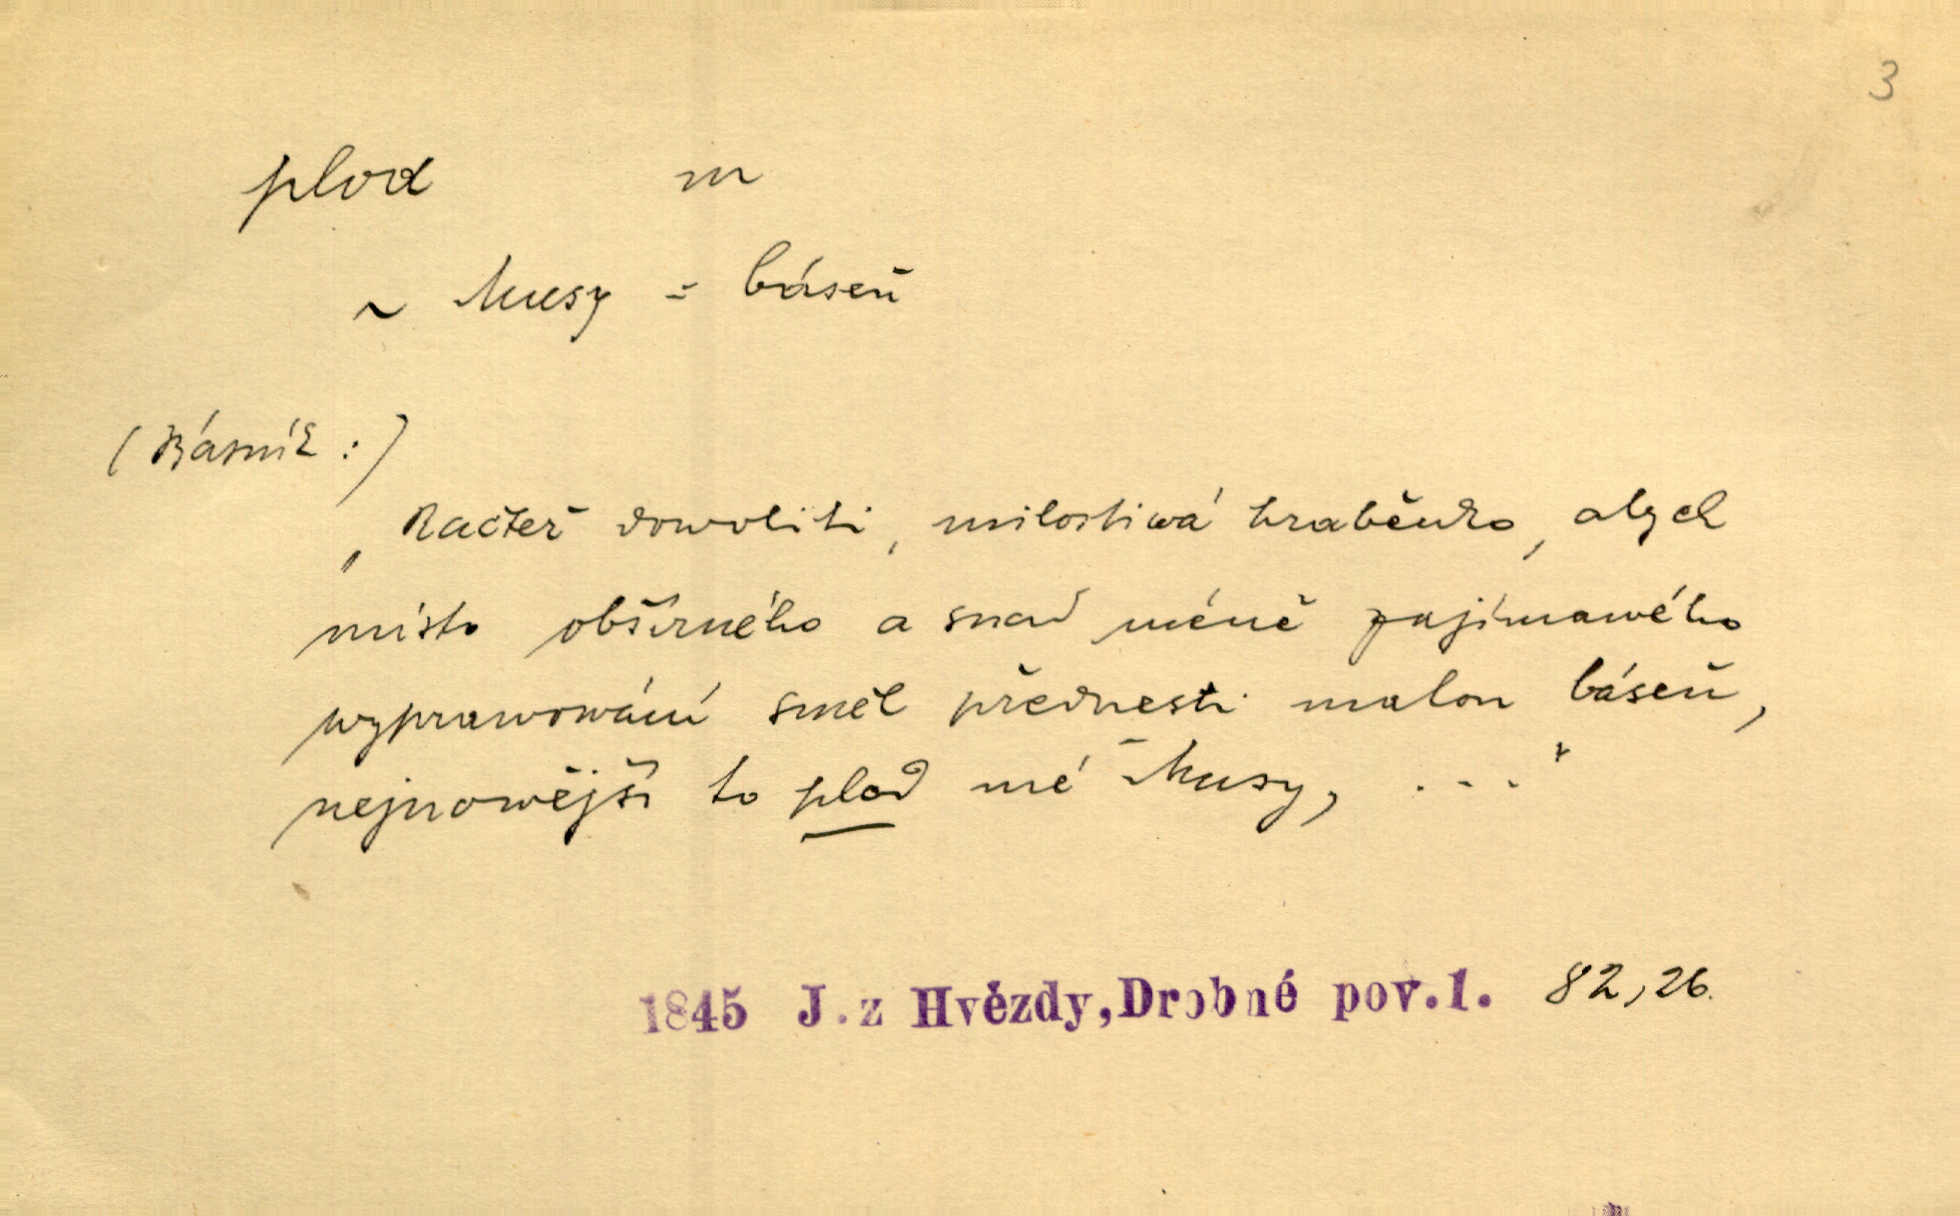 3
plod m
~ Musy = báseň
(Básník:)
„Račtež dowoliti, milostiwá hraběnko, abych
místo obšírného a snad méně zajímawého
wyprawowání směl přednesti malou báseň,
nejnowější to plod mé Musy, ..."
1845 J.z Hvězdy,Drobné pov.1. 82,26.